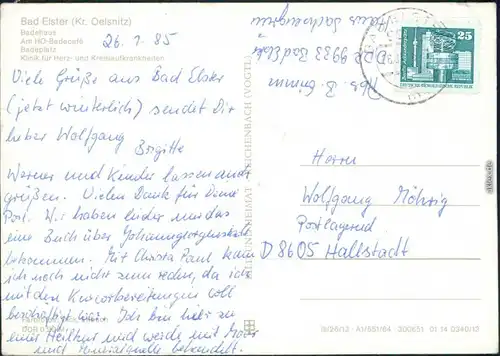 Bad Elster (Kr. Oelsnitz)
Badehaus
Am HO-Badecafé
Badeplatz
Klinik für Herz- und Kreislaufkrankheiten
26. 1. 85
Viele Grüße aus Bad Elster
(jetzt winterlich) sendet Dir
lieber Wolfgang
Brigitte
Werner und Kinder lassen auch
grüßen. Vielen Dank für Deine
Post. Wir haben leider nur das
eine Buch über Johanngeorgenstadt
bekommen. Mit Christa Paul kam
ich noch nicht zum reden, da ich
mit den Kurvorbereitungen voll
beschäftigt war. Ich bin hier zu
einer Heilkur und werde mit Moor
und Mineralquelle behandelt.
BILD UND HEIMAT REICHENBACH (VOGTL)
Abs. B.
DDR 9933 Bad Elster
Haus Sachsengrün
25
DEUTSCHE DEMOKRATISCHE REPUBLIK
Herrn
Wolfgang Möhrig
Postlagernd
D 8605 Hallstadt
III/26/12 A1/551/84 200631 01 14 0240/12